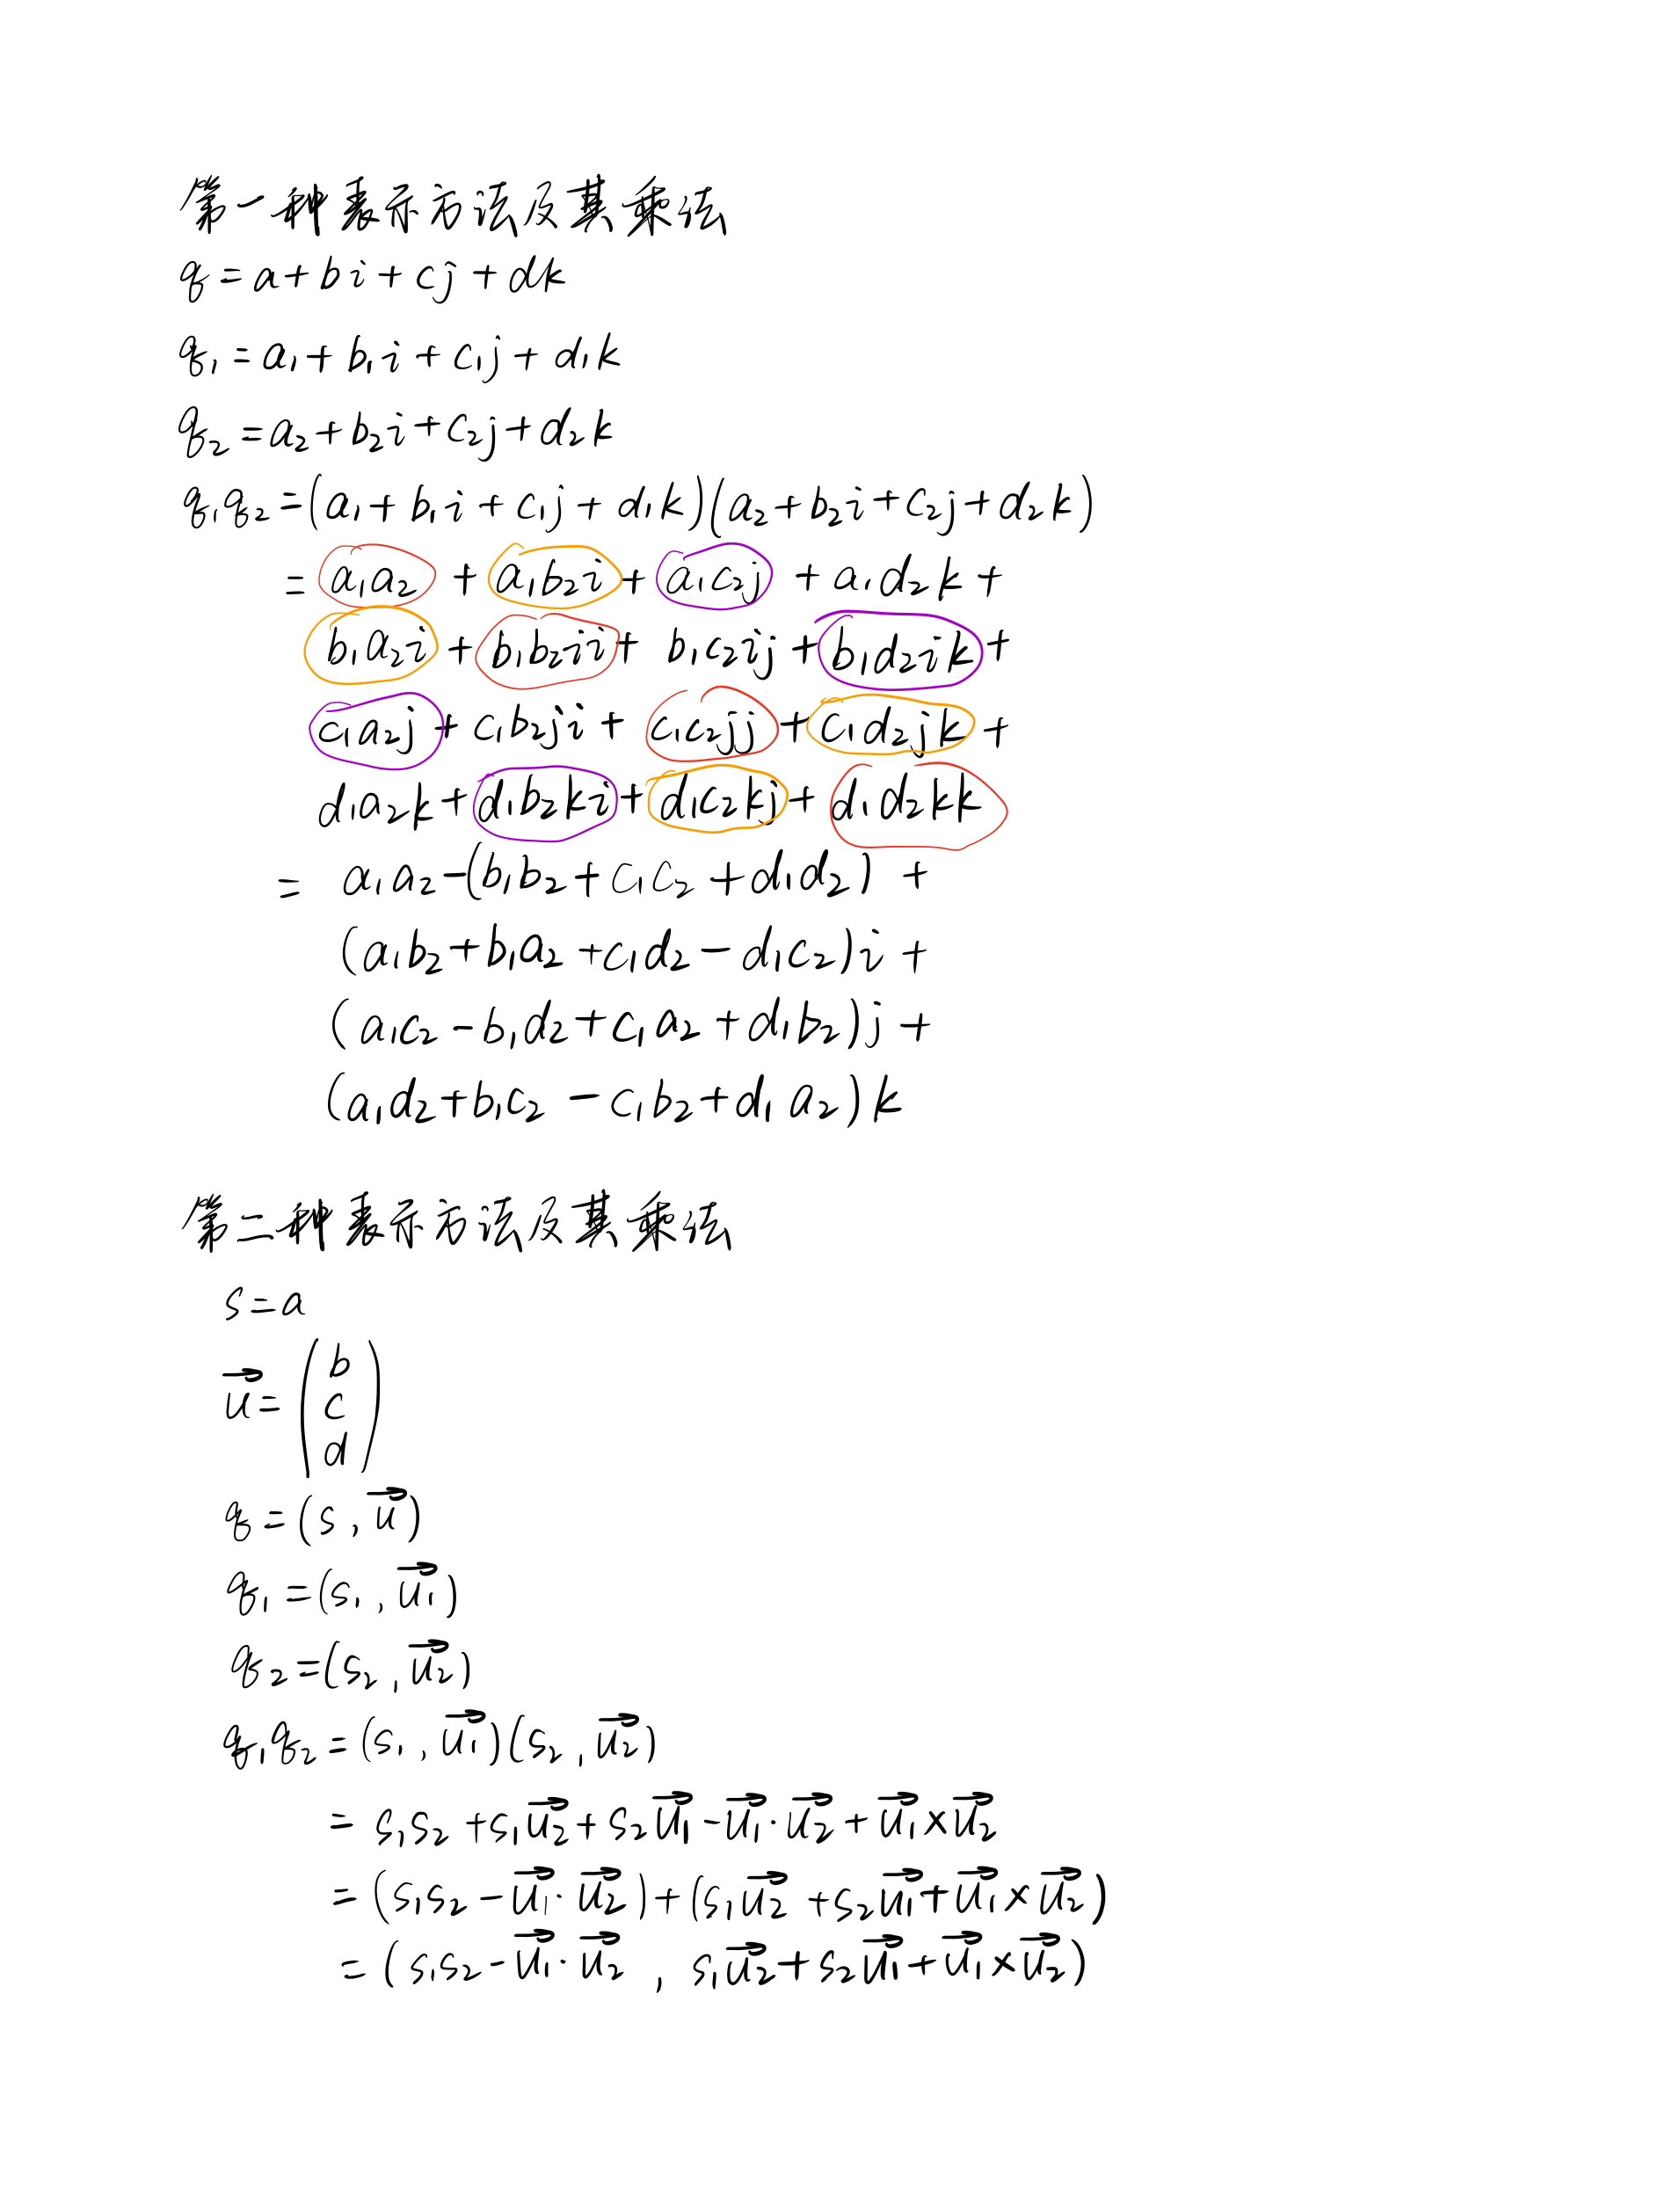 第一种表示方法及其乘法
q = a + bi + cj + dk
q₁ = a₁ + b₁i + c₁j + d₁k
q₂ = a₂ + b₂i + c₂j + d₂k
q₁q₂ = (a₁ + b₁i + c₁j + d₁k)(a₂ + b₂i + c₂j + d₂k)
= a₁a₂ + a₁b₂i + a₁c₂j + a₁d₂k +
b₁a₂i + b₁b₂ii + b₁c₂ij + b₁d₂ik +
c₁a₂j + c₁b₂ji + c₁c₂jj + c₁d₂jk +
d₁a₂k + d₁b₂ki + d₁c₂kj + d₁d₂kk
= a₁a₂ - (b₁b₂ + c₁c₂ + d₁d₂) +
(a₁b₂ + b₁a₂ + c₁d₂ - d₁c₂)i +
(a₁c₂ - b₁d₂ + c₁a₂ + d₁b₂)j +
(a₁d₂ + b₁c₂ - c₁b₂ + d₁a₂)k
第二种表示方法及其乘法
s = a
u⃗ = (b
c
d)
q = (s, u⃗)
q₁ = (s₁, u⃗₁)
q₂ = (s₂, u⃗₂)
q₁q₂ = (s₁, u⃗₁)(s₂, u⃗₂)
= s₁s₂ + s₁u⃗₂ + s₂u⃗₁ - u⃗₁·u⃗₂ + u⃗₁×u⃗₂
= (s₁s₂ - u⃗₁·u⃗₂) + (s₁u⃗₂ + s₂u⃗₁ + u⃗₁×u⃗₂)
= (s₁s₂ - u⃗₁·u⃗₂, s₁u⃗₂ + s₂u⃗₁ + u⃗₁×u⃗₂)